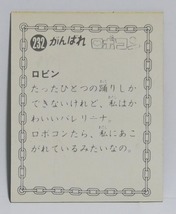 232 がんばれ ロボコン
ロビン
たったひとつの踊りしか
できないけれど、私はか
わいいバレリーナ。
ロボコンたら、私にあこ
がれているみたいなの。